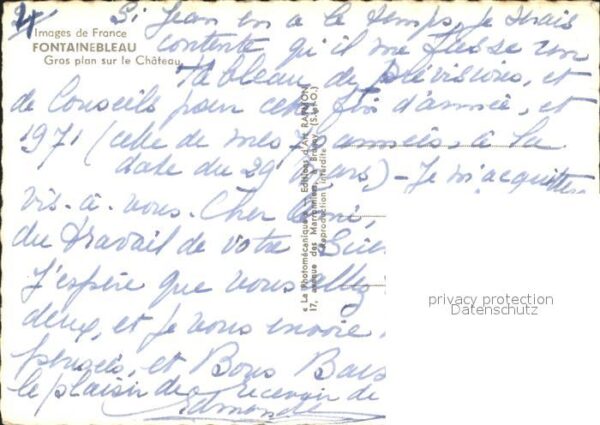 2/ Si Jean en a le temps, je serais
Images de France
FONTAINEBLEAU
Gros plan sur le Château
contente qu'il me fasse un
Tableau de prévisions, et
de Conseils pour cette fin d'année, et
1971 (celle de mes années, à la
date du 29 Mars) - Je m'acquitterai
vis-à-vous. Cher
du travail de votre
J'espère que vous allez
deux, et je vous envoie
pensées, et Bons Bais
le plaisir de recevoir de
Edmonde
« La Photomécanique » - Editions d'Art RAYMON
17, avenue des Marronniers, à Brunoy (S.-&-O.)
Reproduction Interdite
privacy protection
Datenschutz